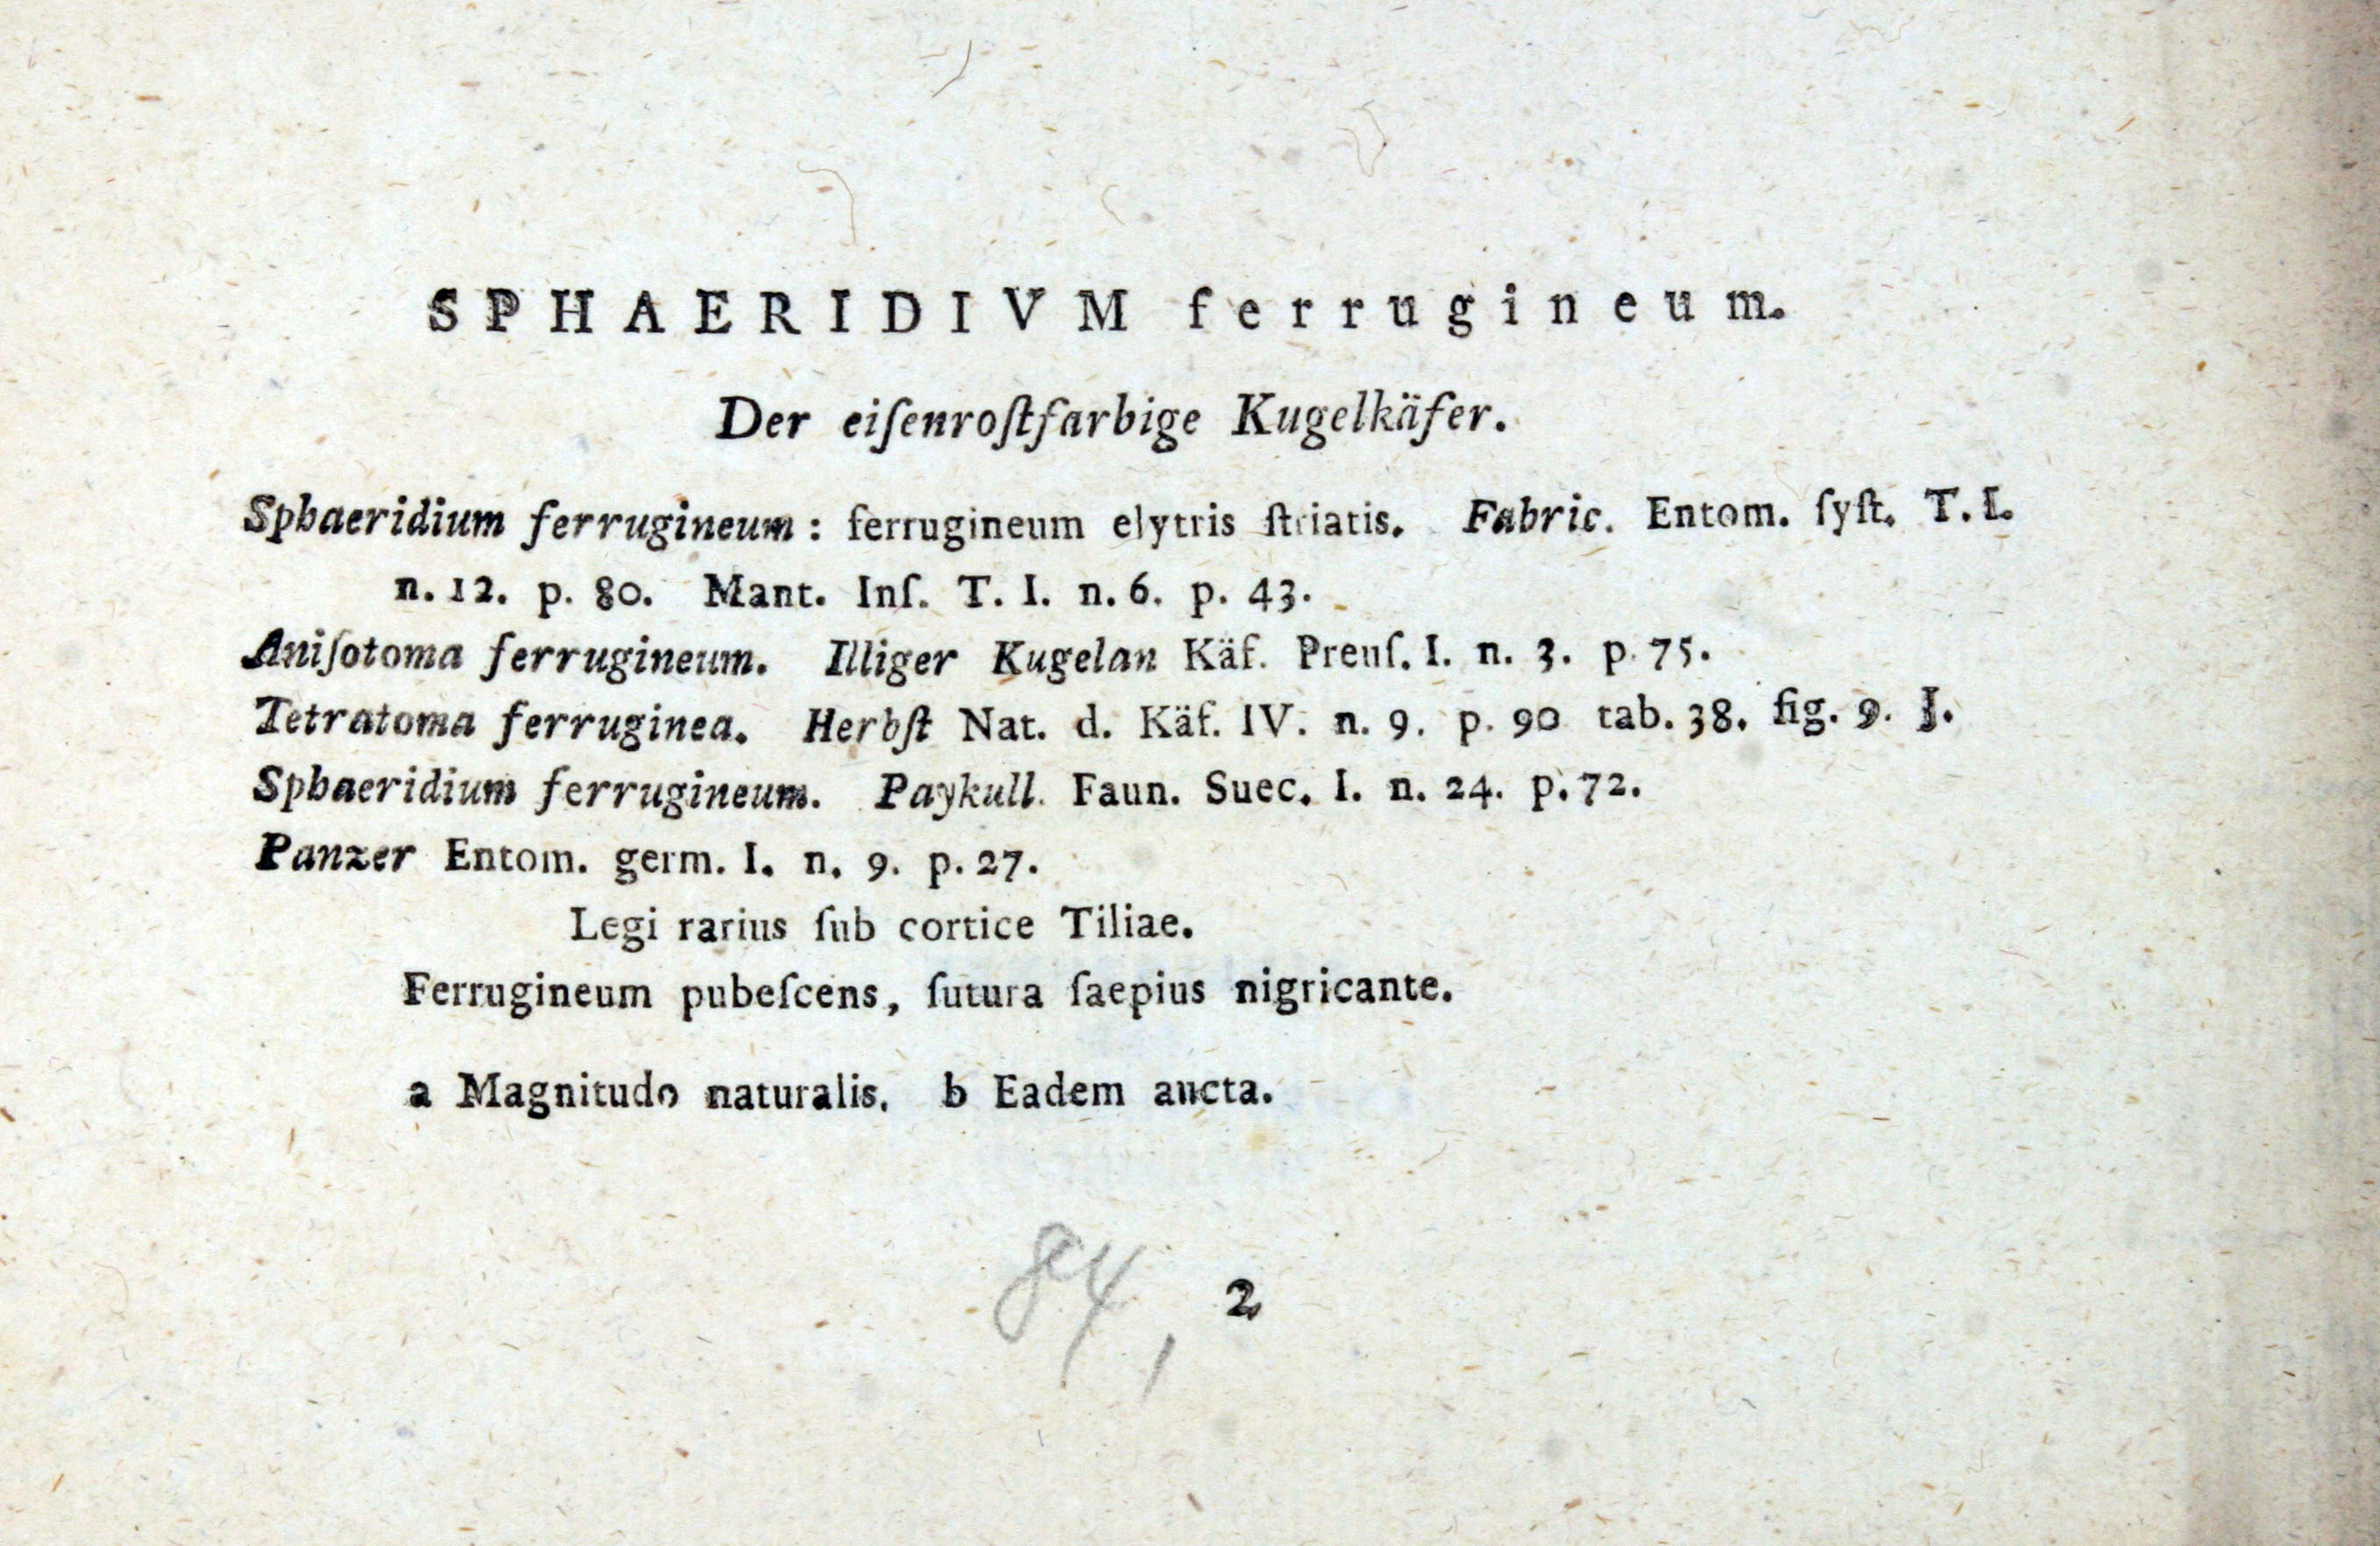 SPHAERIDIVM ferrugineum.
Der eiſenroſtfarbige Kugelkäfer.
Sphaeridium ferrugineum: ferrugineum elytris ſtriatis. Fabric. Entom. ſyſt. T. I.
n. 12. p. 80. Mant. Inſ. T. I. n. 6. p. 43.
Aniſotoma ferrugineum. Illiger Kugelan Käf. Preuſ. I. n. 3. p. 75.
Tetratoma ferruginea. Herbſt Nat. d. Käf. IV. n. 9. p. 90 tab. 38. fig. 9. J.
Sphaeridium ferrugineum. Paykull. Faun. Suec. I. n. 24. p. 72.
Panzer Entom. germ. I. n. 9. p. 27.
Legi rarius ſub cortice Tiliae.
Ferrugineum pubeſcens, ſutura ſaepius nigricante.
a Magnitudo naturalis. b Eadem aucta.
84, 2